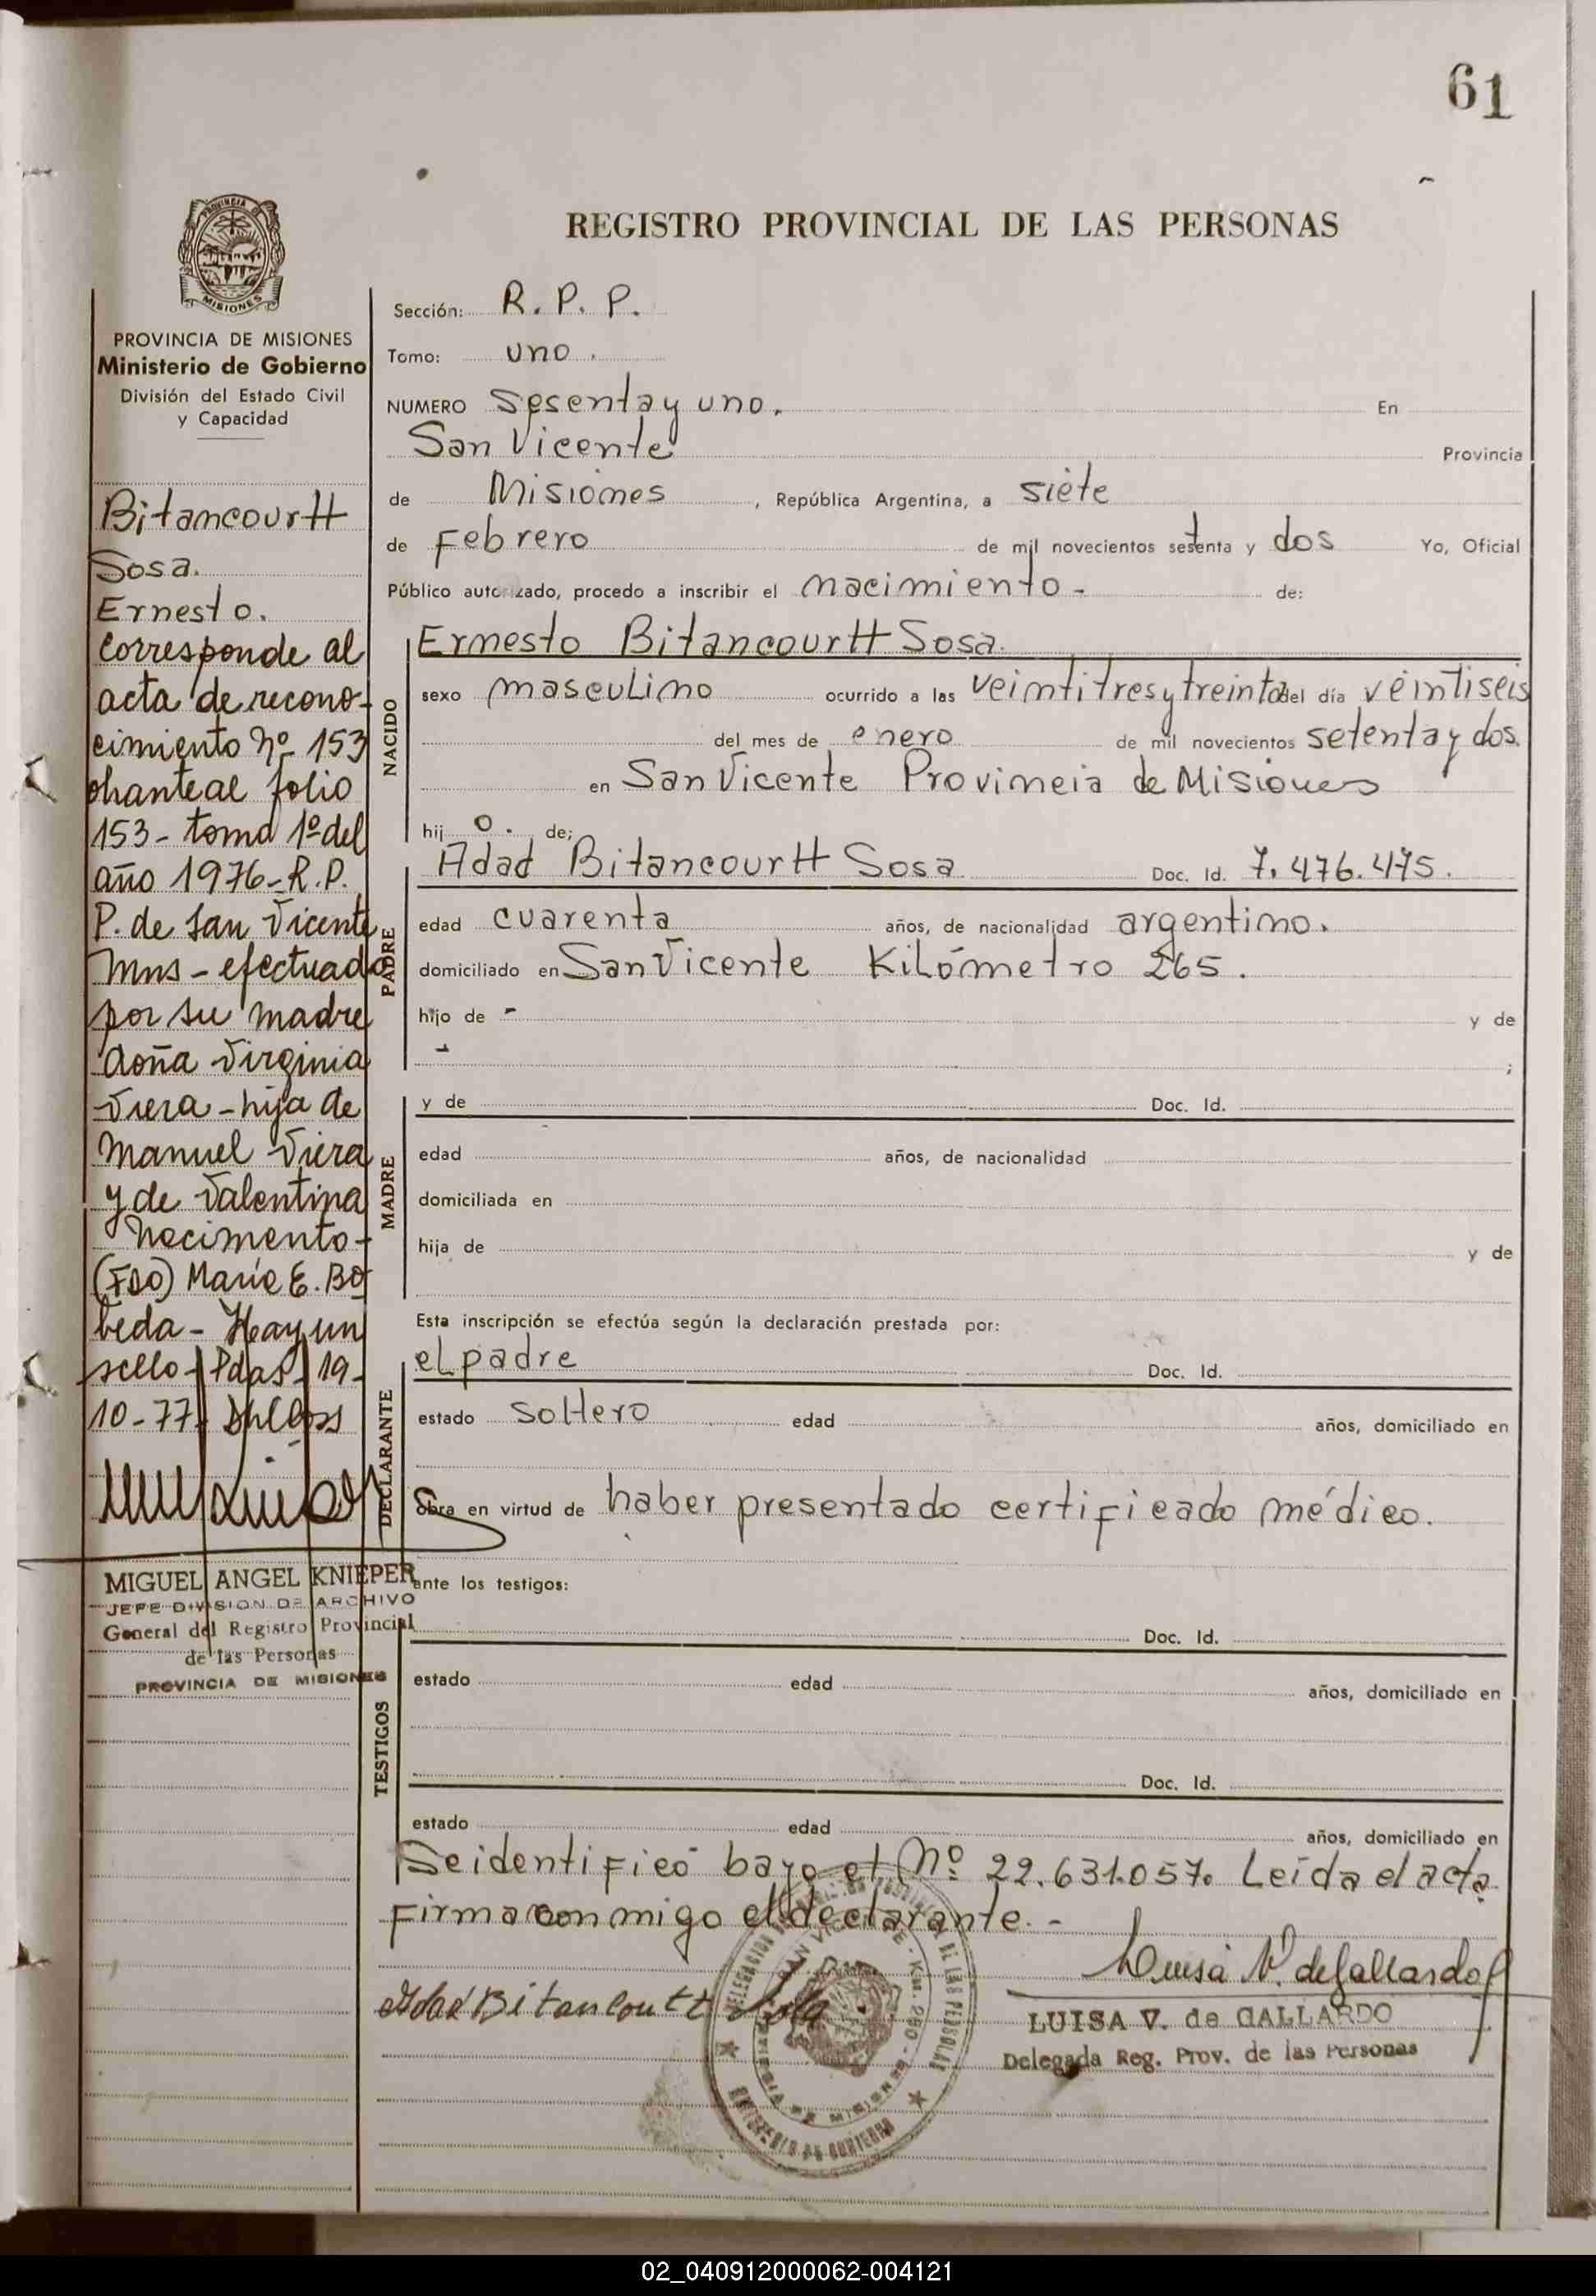 61
REGISTRO PROVINCIAL DE LAS PERSONAS
PROVINCIA DE
MISIONES
PROVINCIA DE MISIONES
Ministerio de Gobierno
División del Estado Civil
y Capacidad
Bitancourtt
Sosa.
Ernesto.
Corresponde al
acta de recono-
cimiento nº 153
obrante al folio
153 - tomo 1º del
año 1976 - R.P.
P. de San Vicente
Mns - efectuado
por su madre
doña Virginia
Viera - hija de
Manuel Viera
y de Valentina
Nocimento -
(FDO) María E. Bo
beda - Hay un
sello - Pdas - 19 -
10 - 77 -
MIGUEL ANGEL KNIEPER
JEFE DIVISION DE ARCHIVO
General del Registro Provincial
de las Personas
PROVINCIA DE MISIONES
Sección: R. P. P.
Tomo: uno.
NUMERO Sesenta y uno. En
San Vicente Provincia
de Misiones, República Argentina, a siete
de Febrero de mil novecientos setenta y dos Yo, Oficial
Público autorizado, procedo a inscribir el nacimiento - de:
NACIDO
Ernesto Bitancourtt Sosa.
sexo masculino ocurrido a las veintitres y treinta del día veintiseis
del mes de enero de mil novecientos setenta y dos.
en San Vicente Provincia de Misiones
hij o. de;
PADRE
Adad Bitancourtt Sosa Doc. Id. 7.476.475.
edad cuarenta años, de nacionalidad argentino.
domiciliado en San Vicente Kilómetro 265.
hijo de - y de
- ;
MADRE
y de Doc. Id.
edad años, de nacionalidad
domiciliada en
hija de y de
Esta inscripción se efectúa según la declaración prestada por:
DECLARANTE
el padre Doc. Id.
estado soltero edad años, domiciliado en
Obra en virtud de haber presentado certificado médico.
ante los testigos:
TESTIGOS
Doc. Id.
estado edad años, domiciliado en
Doc. Id.
estado edad años, domiciliado en
Se identificó bajo el Nº 22.631.057. Leída el acta
firma conmigo el declarante. -
Adad Bitancourtt Sosa
Luisa V. de Gallardo
LUISA V. de GALLARDO
Delegada Reg. Prov. de las Personas
02_040912000062-004121